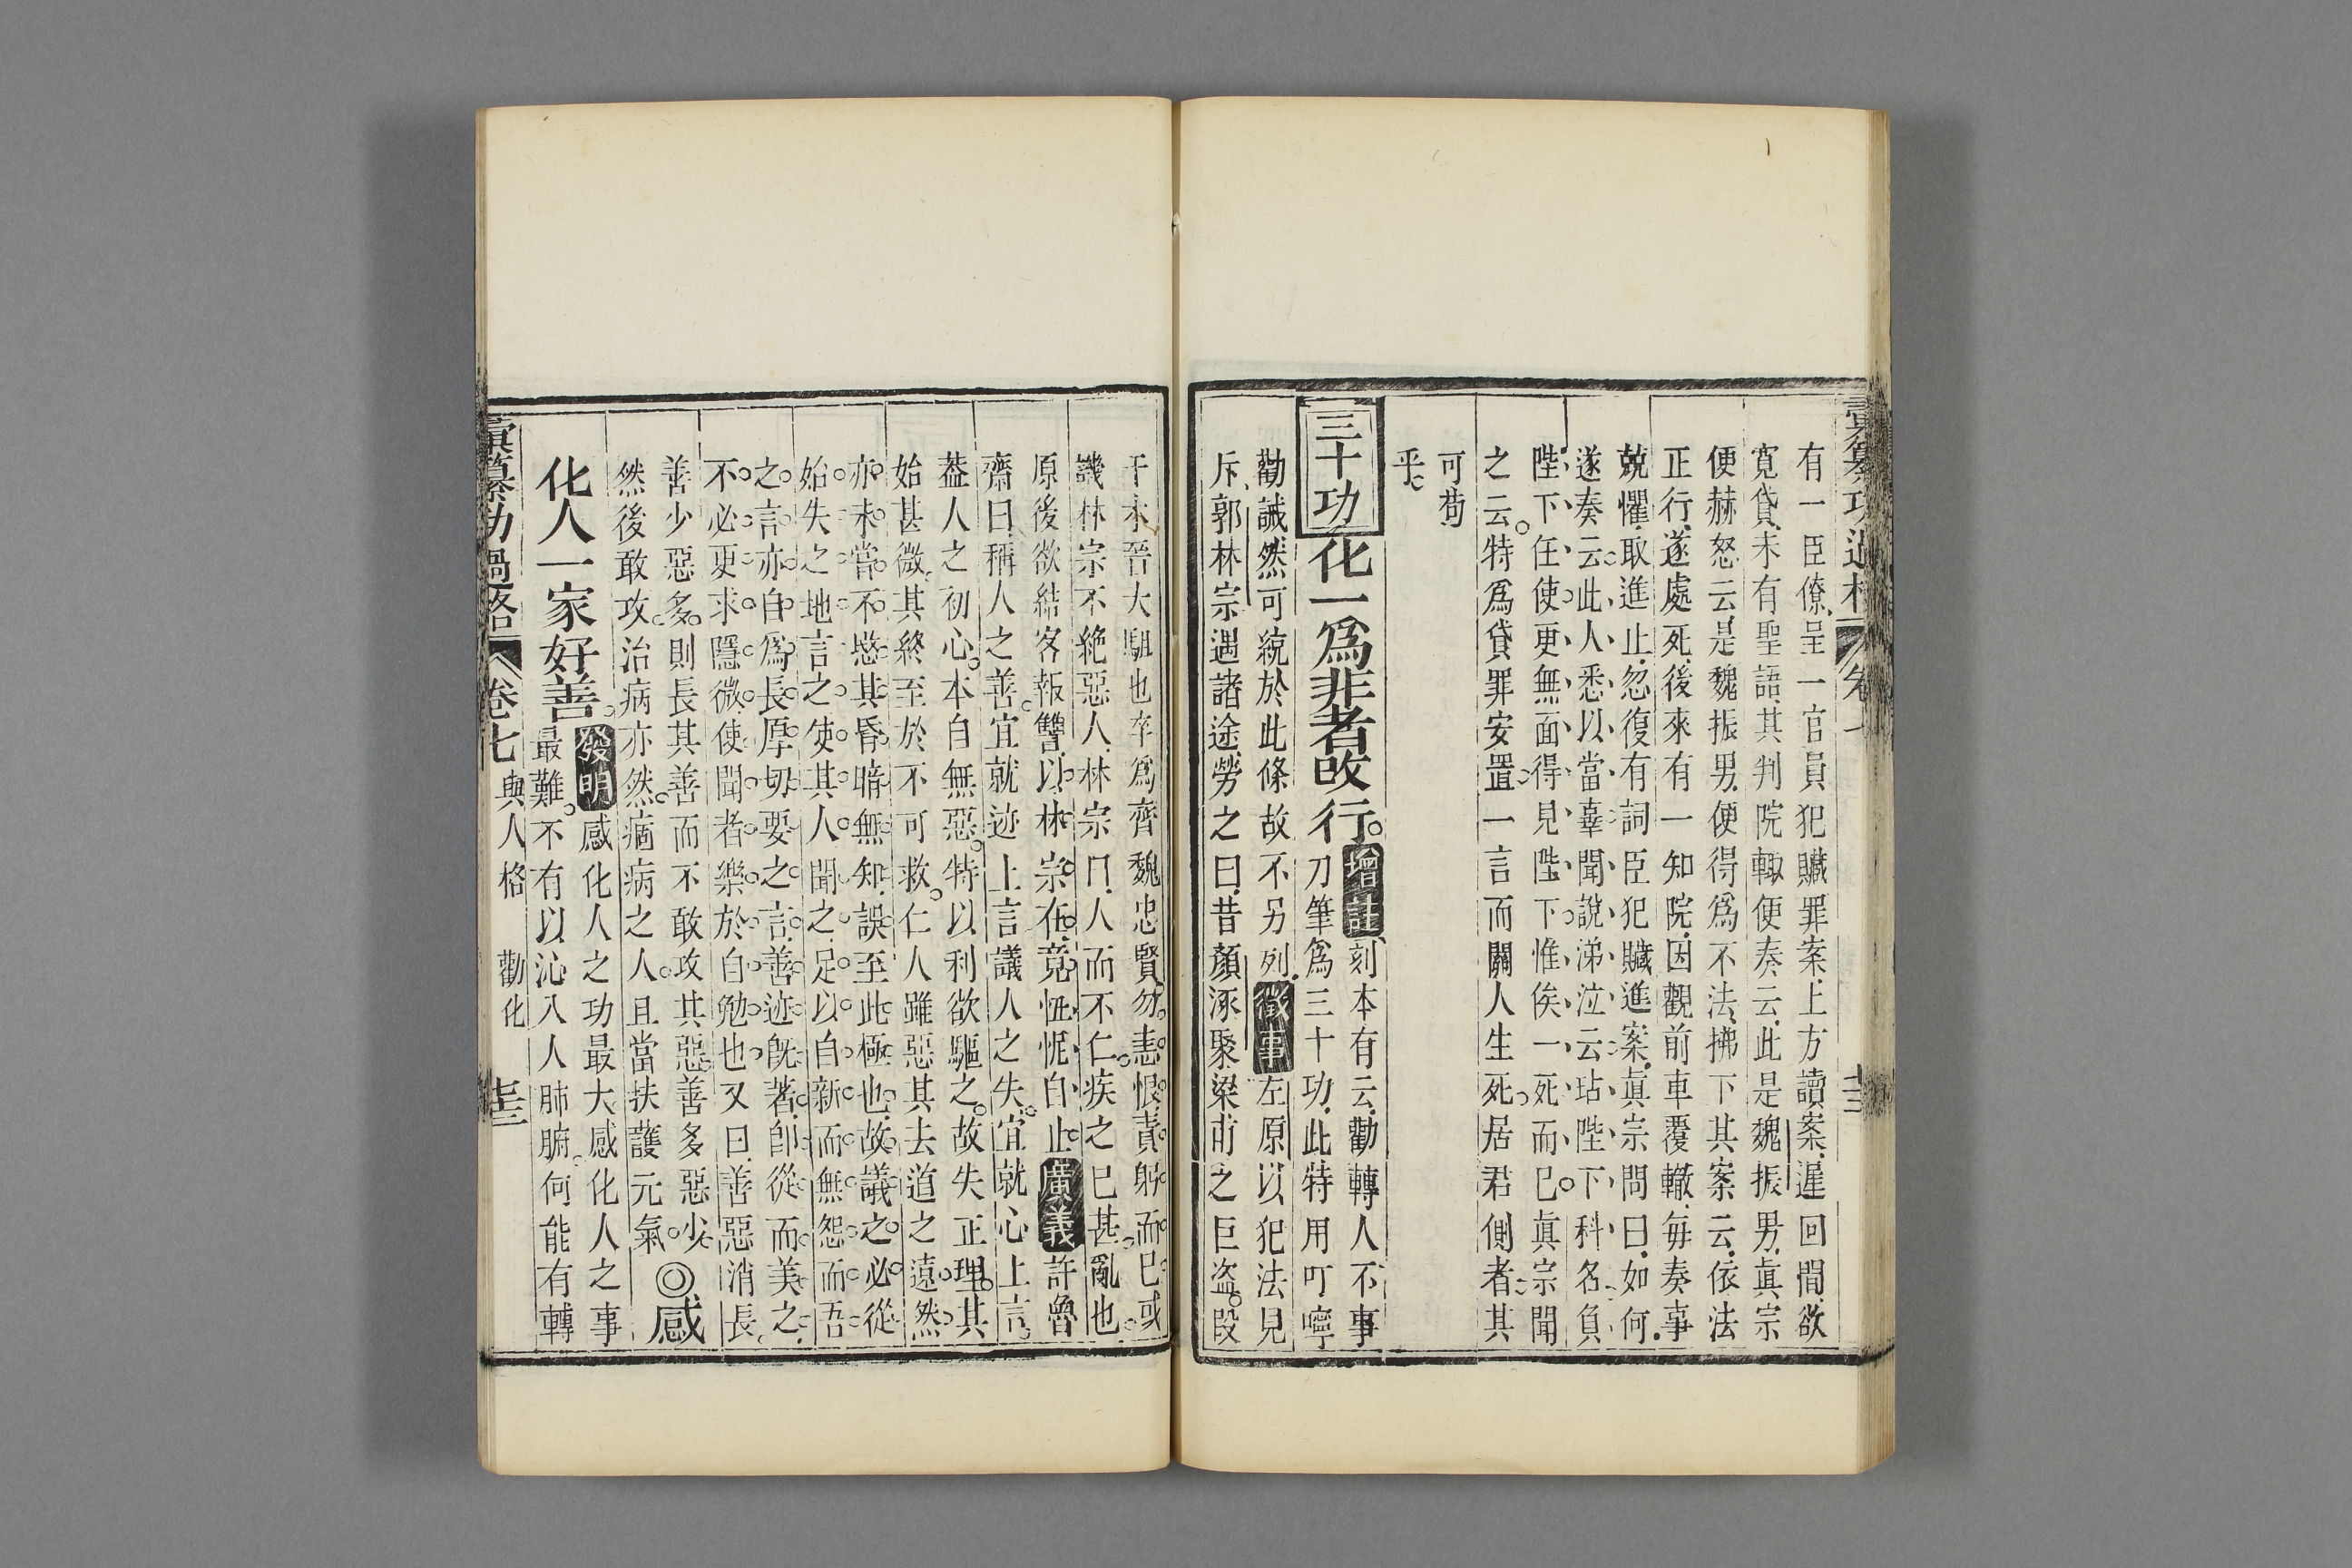 彙纂功過格 卷七
有一臣僚呈一官員犯贓罪案上方讀案遲回間欲
寬貸未有聖語其判院輙便奏云此是魏振男眞宗
便赫怒云是魏振男便得爲不法擲下其案云依法
正行遂處死後來有一知院因觀前車覆轍每奏事
兢懼取進止忽復有詞臣犯贓進案眞宗問曰如何
遂奏云此人悉以當辜聞說涕泣云玷陛下科名負
陛下任使更無面得見陛下惟俟一死而已眞宗聞
之云特爲貸罪安置一言而關人生死居君側者其
可苟
乎
三十功 化一爲非者改行 增註 刻本有云勸轉人不事
刀筆爲三十功此特用叮嚀
勸誡然可統於此條故不另列 徵事 左原以犯法見
斥郭林宗遇諸途勞之曰昔顏涿聚梁甫之巨盗段
干木晉大駔也卒爲齊魏忠賢勿恚恨責躬而已或
譏林宗不絶惡人林宗曰人而不仁疾之已甚亂也
原後欲結客報讐以林宗在竟忸怩自止 廣義 許魯
齋曰稱人之善宜就迹上言議人之失宜就心上言
葢人之初心本自無惡特以利欲驅之故失正理其
始甚微其終至於不可救仁人雖惡其去道之遠然
亦未嘗不愍其昏暗無知誤至此極也故議之必從
始失之地言之使其人聞之足以自新而無怨而吾
之言亦自爲長厚切要之言善迹旣著卽從而美之
不必更求隱微使聞者樂於自勉也又曰善惡消長
善少惡多則長其善而不敢攻其惡善多惡少
然後敢攻治病亦然痼病之人且當扶護元氣 ◎感
化人一家好善 發明 感化人之功最大感化人之事
最難不有以沁入人肺腑何能有轉
彙纂功過格 卷七 與人格 勸化